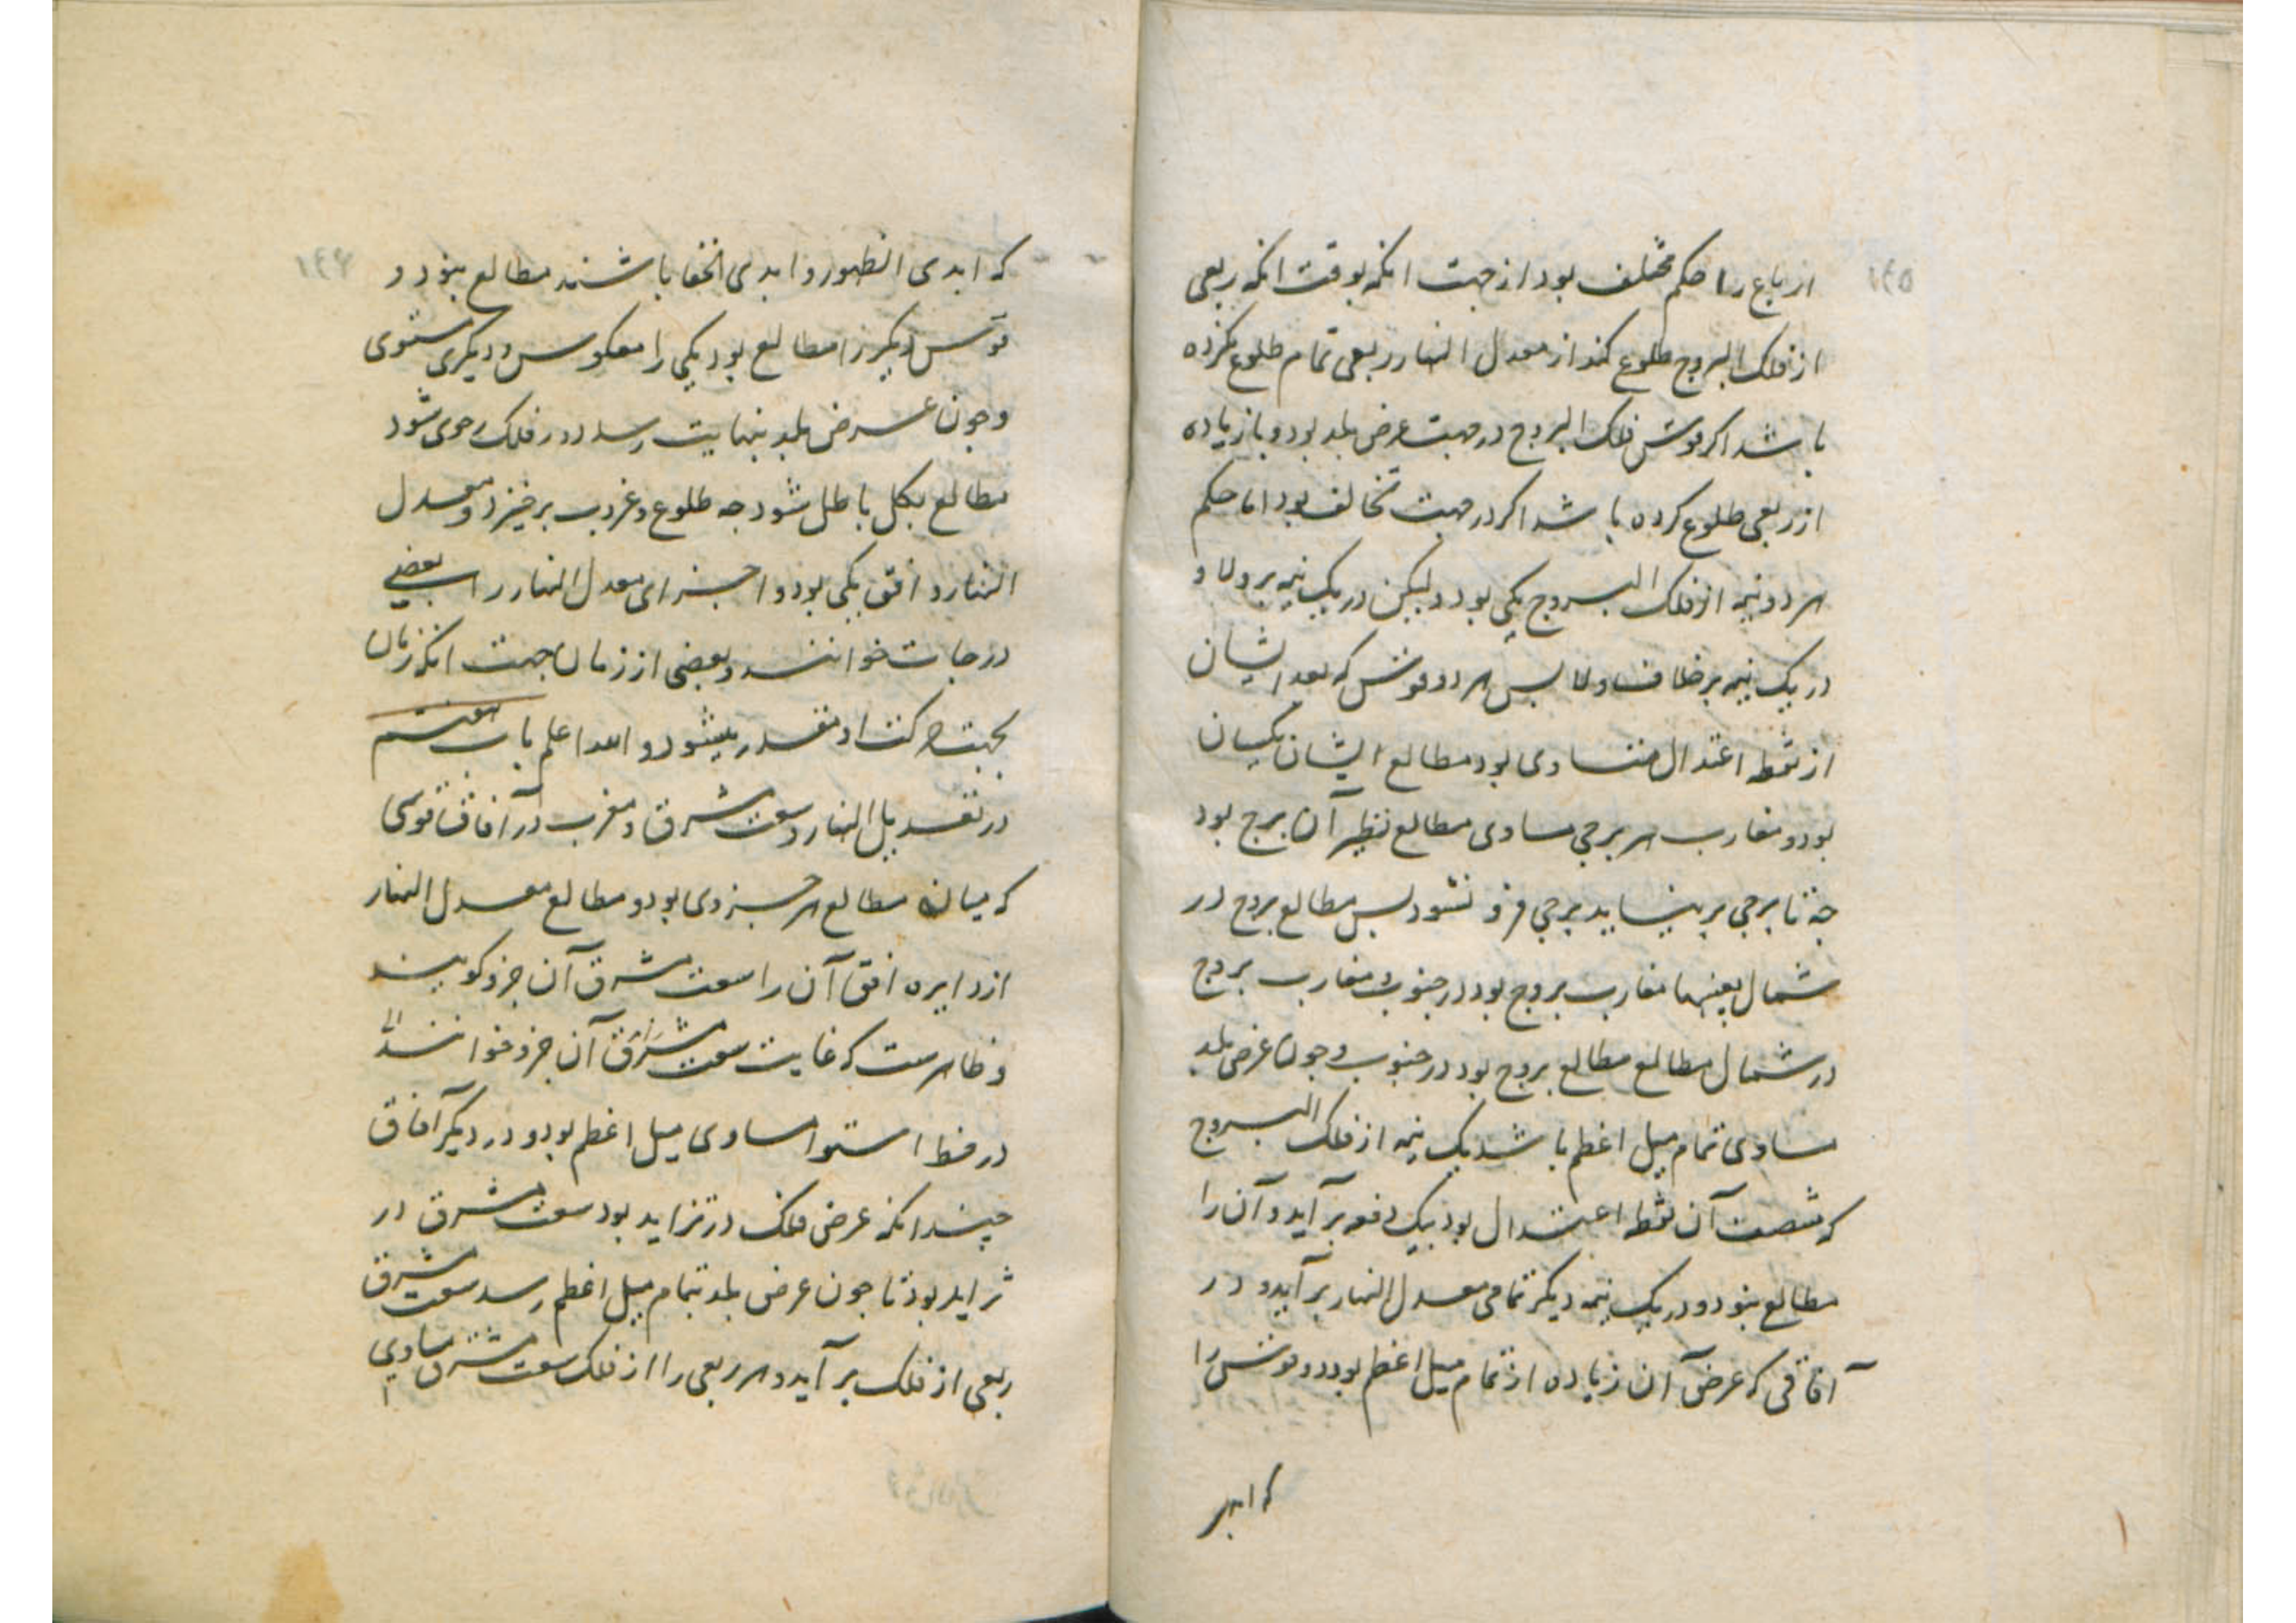 ارباع را حکم مختلف بود از جهت انکه بوقت انکه ربعی
از فلک البروج طلوع کند از معدل النهار ربعی تمام طلوع نکرده
باشد اکر قوش فلک البروج در جهت عرض بلد بود و با زیاده
از ربعی طلوع کرده باشد اکر در جهت تخالف بود اما حکم
هر دو نیمه از فلک البروج یکی بود ولیکن در یک نیمه بر ولا و
در یک نیمه بر خلاف ولا بس هر دو قوش که بعد ایشان
از نقطه اعتدال متساوی بود مطالع ایشان یکسان
بود و مغارب هر برجی مساوی مطالع نظیر آن برج بود
جه تا برجی بر نیاید برجی فرو نشود بس مطالع بروج در
شمال بعینها مغارب بروج بود در جنوب و مغارب بروج
در شمال مطالع مطالع بروج بود در جنوب و جون عرض بلد
مساوی تمام میل اعظم باشد یک نیمه از فلک البروج
که منتصف آن نقطه اعتدال بود بیک دفعه بر آید و آن را
مطالع بنود و در یک نیمه دیکر تمامی معدل النهار بر آید و در
آفاقی که عرض آن زیاده از تمام میل اعظم بود دو قوش را
که ابدی
۱۶۵
که ابدی الظهور و ابدی الخفا باشند مطالع بنود و
قوس دیکر را مطالع بود یکی را معکوس و دیکری مستوی
وجون عرض بلد بنهایت رسد دور فلک رحوی شود
مطالع بکل باطل شود جه طلوع و غروب بر خیزد و معدل
النهار و افق یکی بود و اجزای معدل النهار را بعضی
درجات خوانند و بعضی از زمان جهت انکه زمان
بجهت حرکت او مقدر میشود و الله اعلم باب هفتم
در تعدیل النهار و سعت مشرق و مغرب در آفاق قوسی
که میان مطالع هر جزوی بود و مطالع معدل النهار
از دایره افق آن را سعت مشرق آن جزو کویند
و ظاهرست که غایت سعت مشرق آن جزو خوانند
در خط استوا مساوی میل اعظم بود و در دیکر آفاق
چندانکه عرض فلک در تزاید بود سعت مشرق در
تزاید بود تا جون عرض بلد بتمام میل اعظم رسد سعت مشرق
ربعی از فلک بر آید و هر ربعی را از فلک سعت مشرق مساوی
۱۶۶